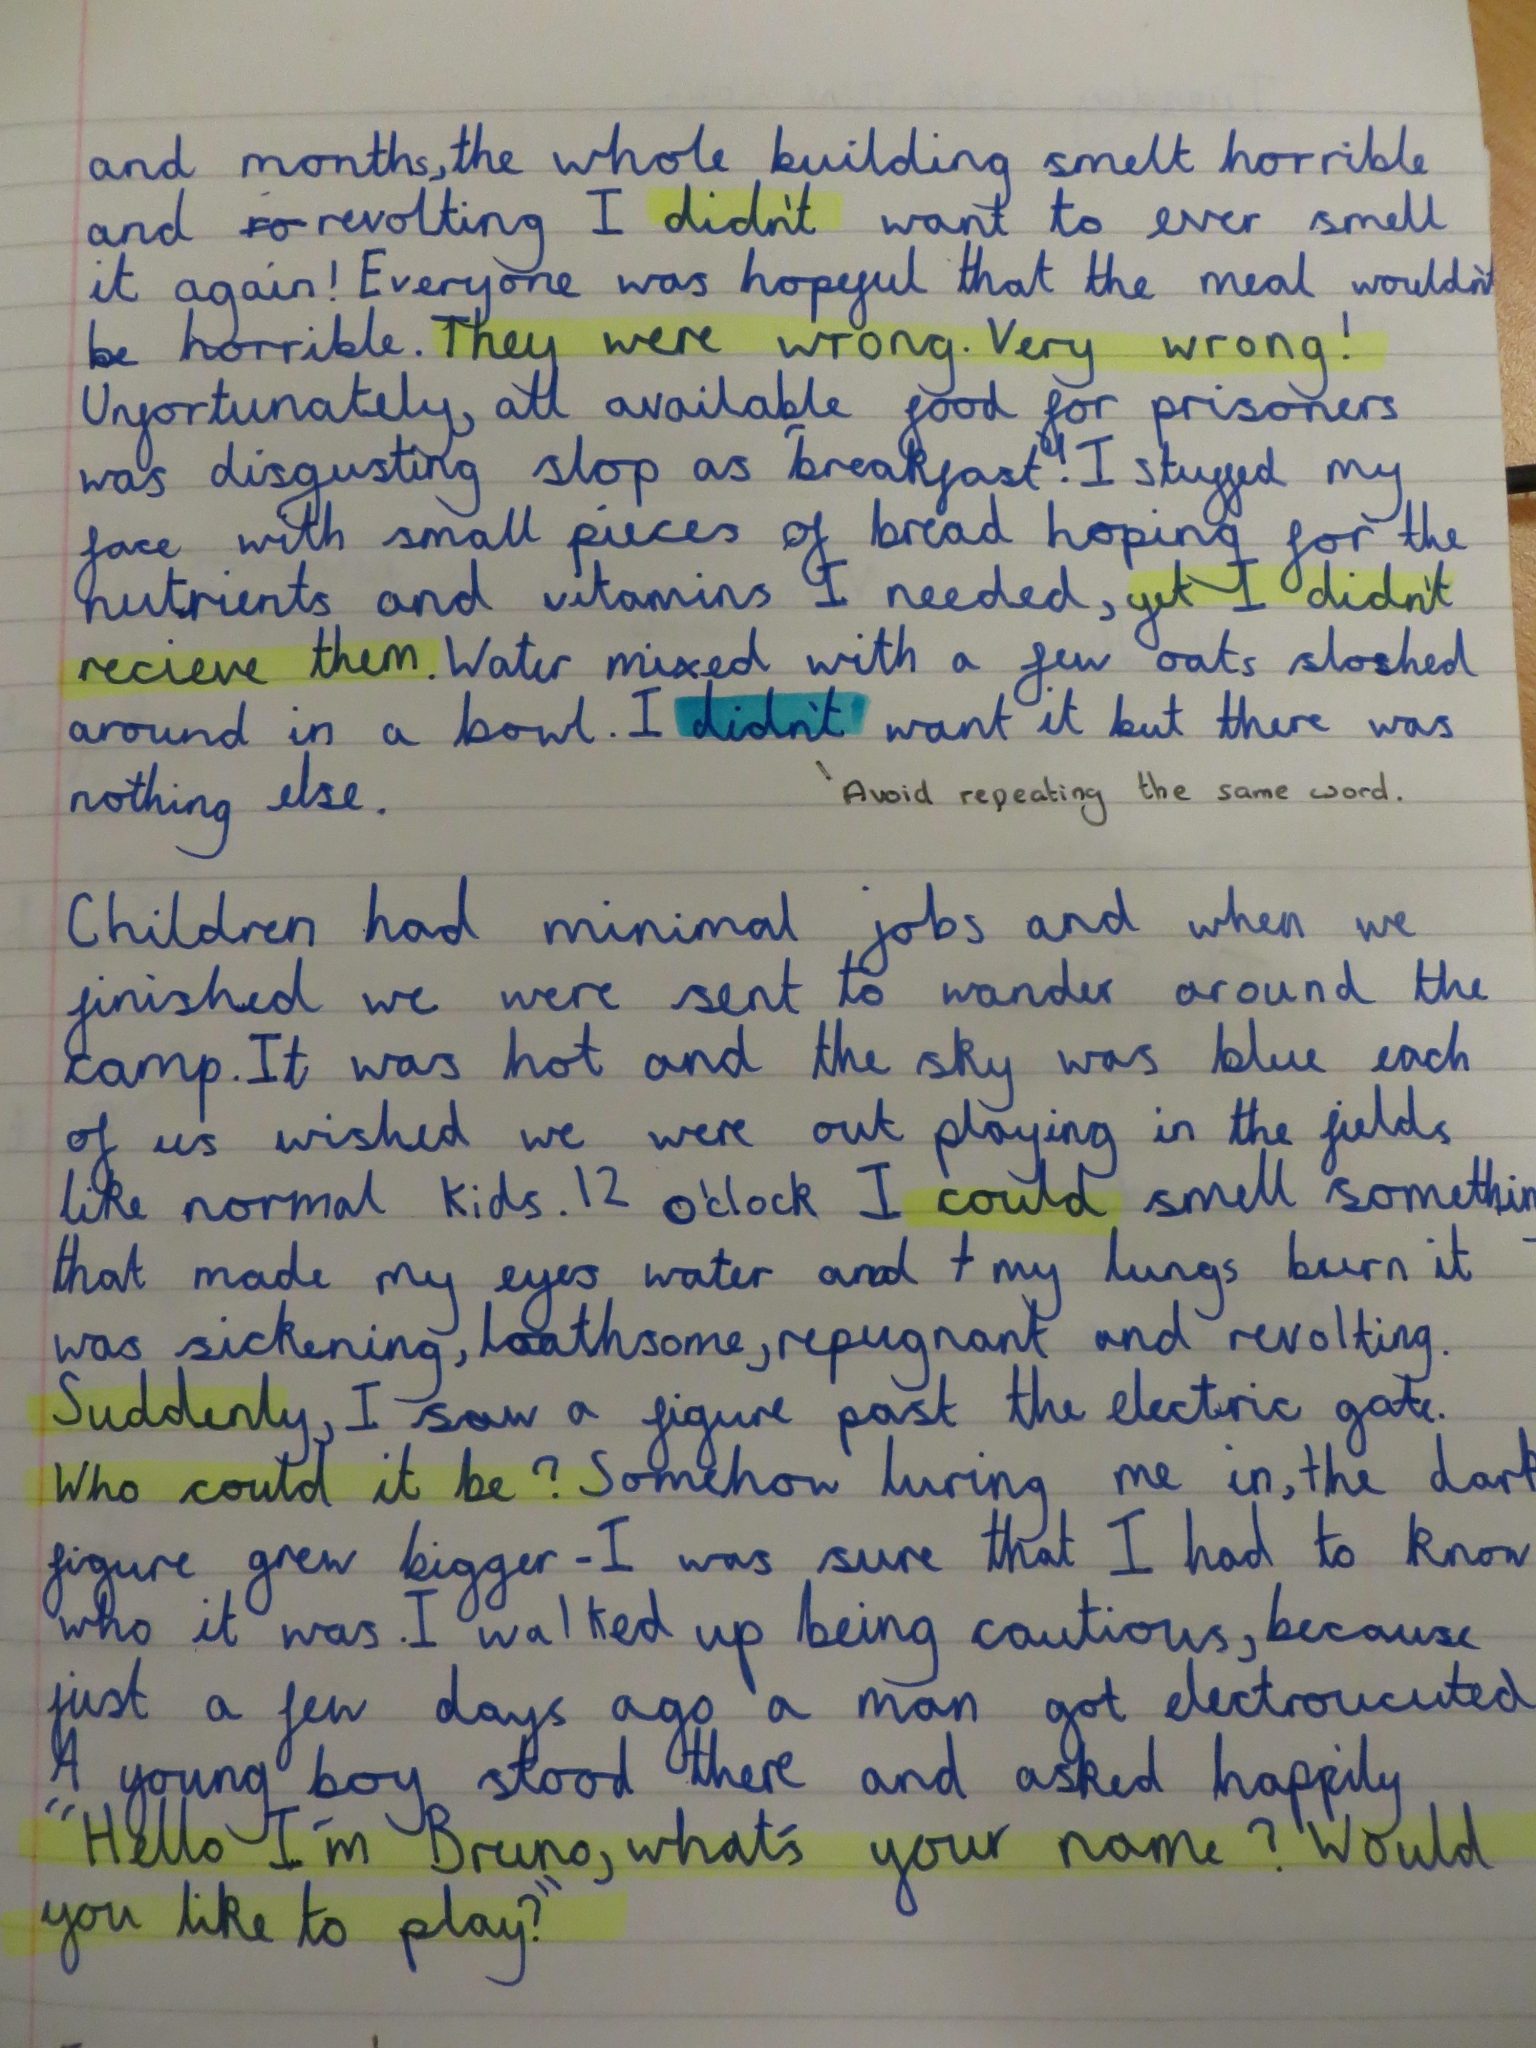 and months, the whole building smelt horrible
and ro revolting I didn't want to ever smell
it again! Everyone was hopeful that the meal wouldn't
be horrible. They were wrong. Very wrong!
Unfortunately, all available food for prisoners
was disgusting slop as "breakfast"! I stuffed my
face with small pieces of bread hoping for the
nutrients and vitamins I needed, yet I didn't
recieve them. Water mixed with a few oats sloshed
around in a bowl. I didn't want it but there was
nothing else.
Avoid repeating the same word.
Children had minimal jobs and when we
finished we were sent to wander around the
camp. It was hot and the sky was blue each
of us wished we were out playing in the fields
like normal kids. 12 o'clock I could smell somethin
that made my eyes water and + my lungs burn it
was sickening, loathsome, repugnant and revolting.
Suddenly, I saw a figure past the electric gate.
Who could it be? Somehow luring me in, the dark
figure grew bigger - I was sure that I had to know
who it was. I walked up being cautious, because
just a few days ago a man got electroucuted
A young boy stood there and asked happily
"Hello I'm Bruno, what's your name? Would
you like to play?"